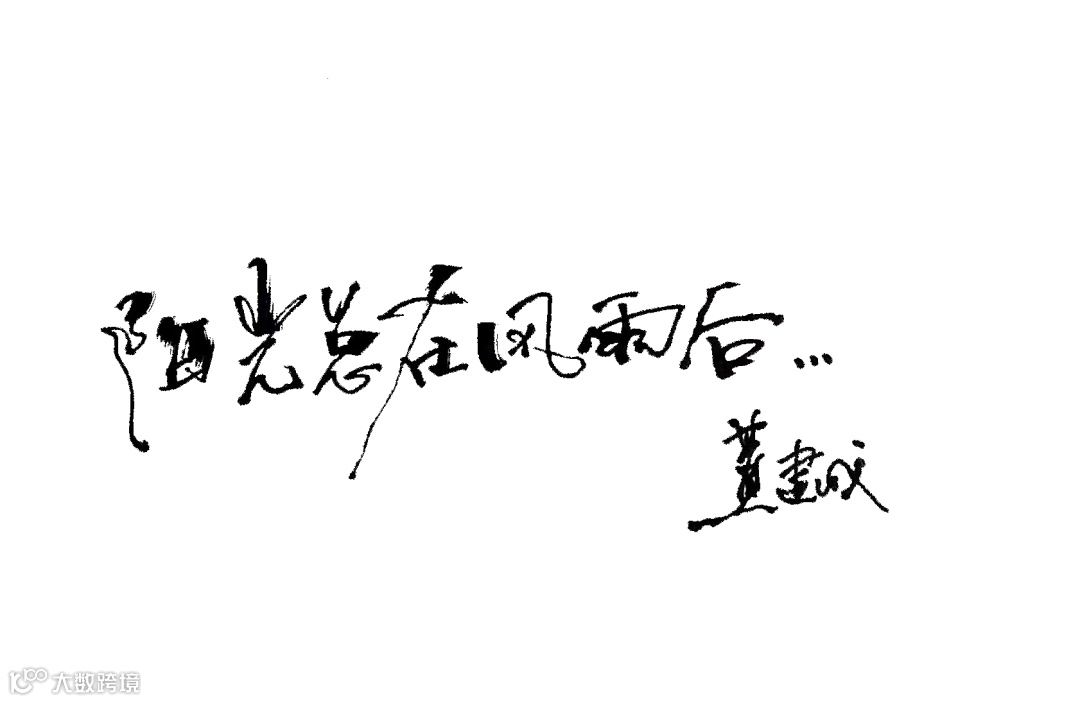 阳光总在风雨后...
黄建成
大数跨境